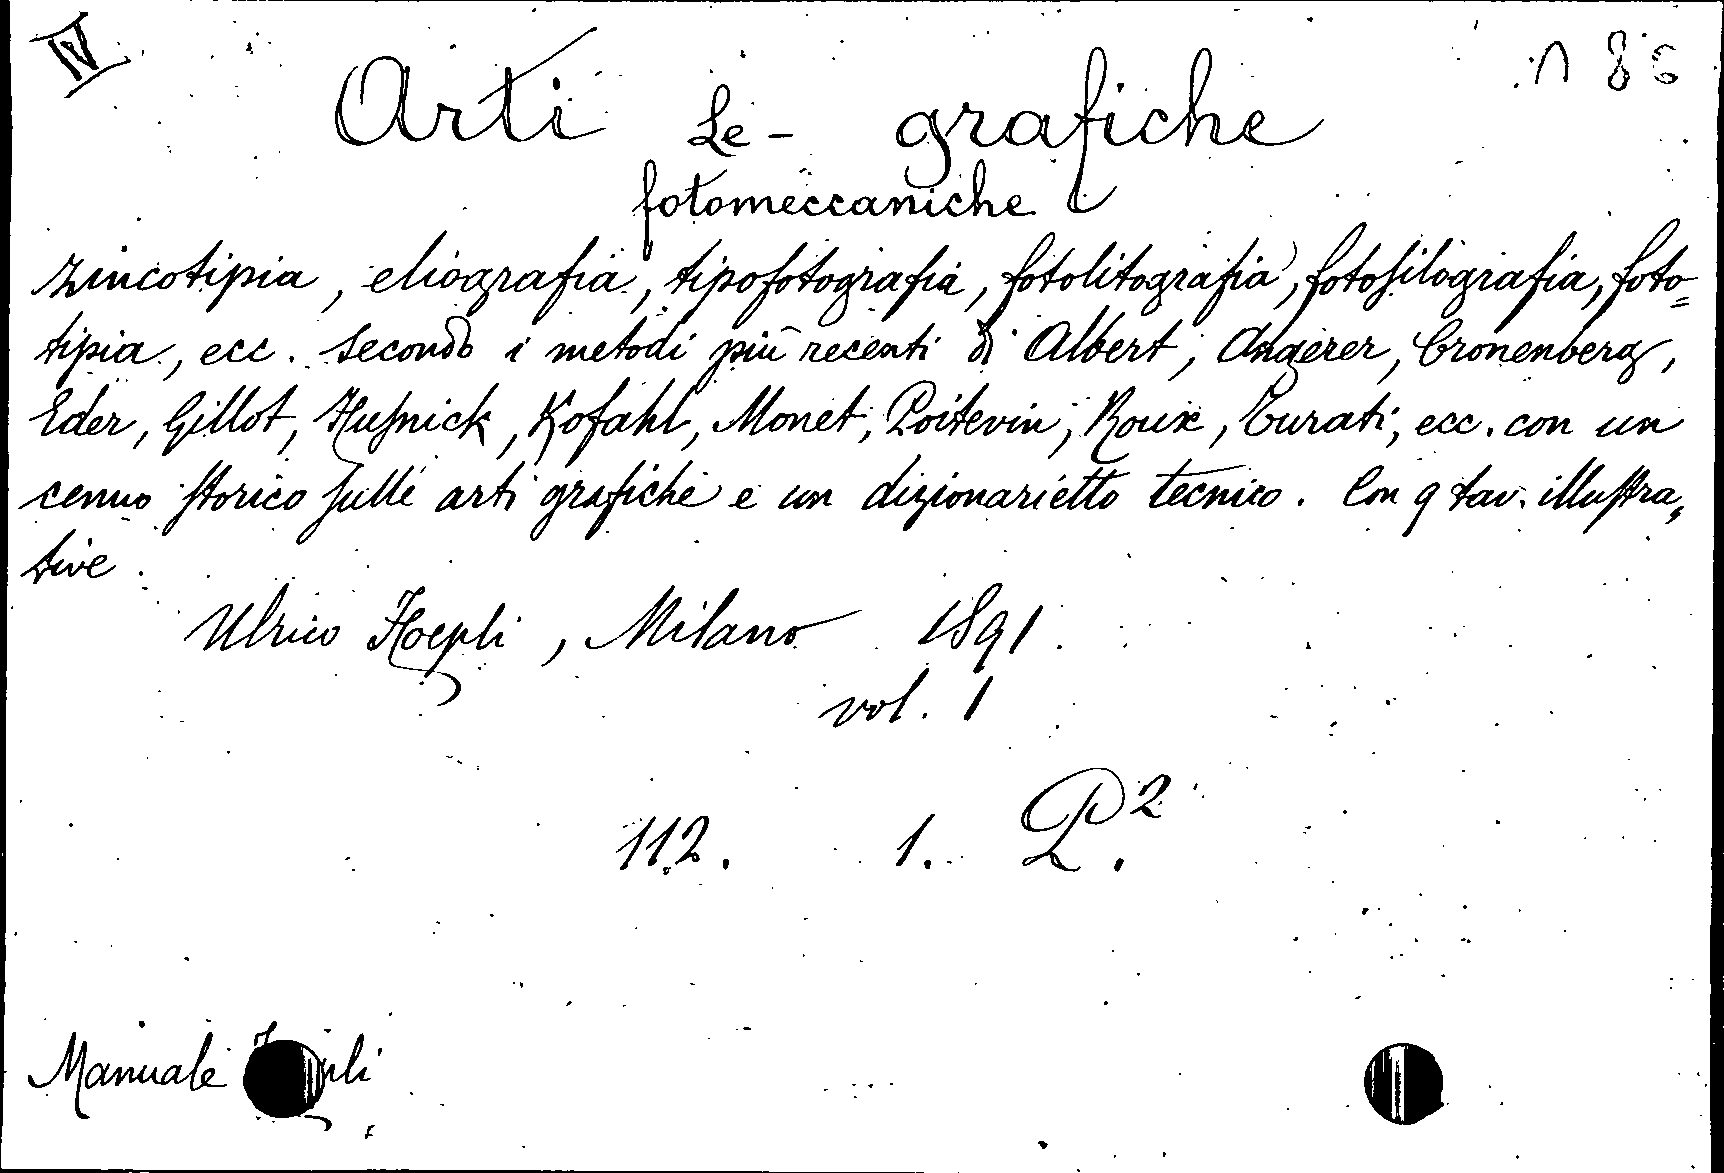 IV
n 86
Arti Le - grafiche
fotomeccaniche
zincotipia, eliografia, tipofotografia, fotolitografia, fotosilografia, foto=
tipia, ecc. secondo i metodi più recenti di Albert, Angerer, Cronenberg,
Eder, Gillot, Husnick, Kofahl, Monet, Poitevin, Roux, Turati, ecc. con un
cenno storico sulle arti grafiche e un dizionarietto tecnico. Con 9 tav. illustra„
tive.
Ulrico Hoepli, Milano 1891.
vol. 1
112. 1. P.2
Manuale